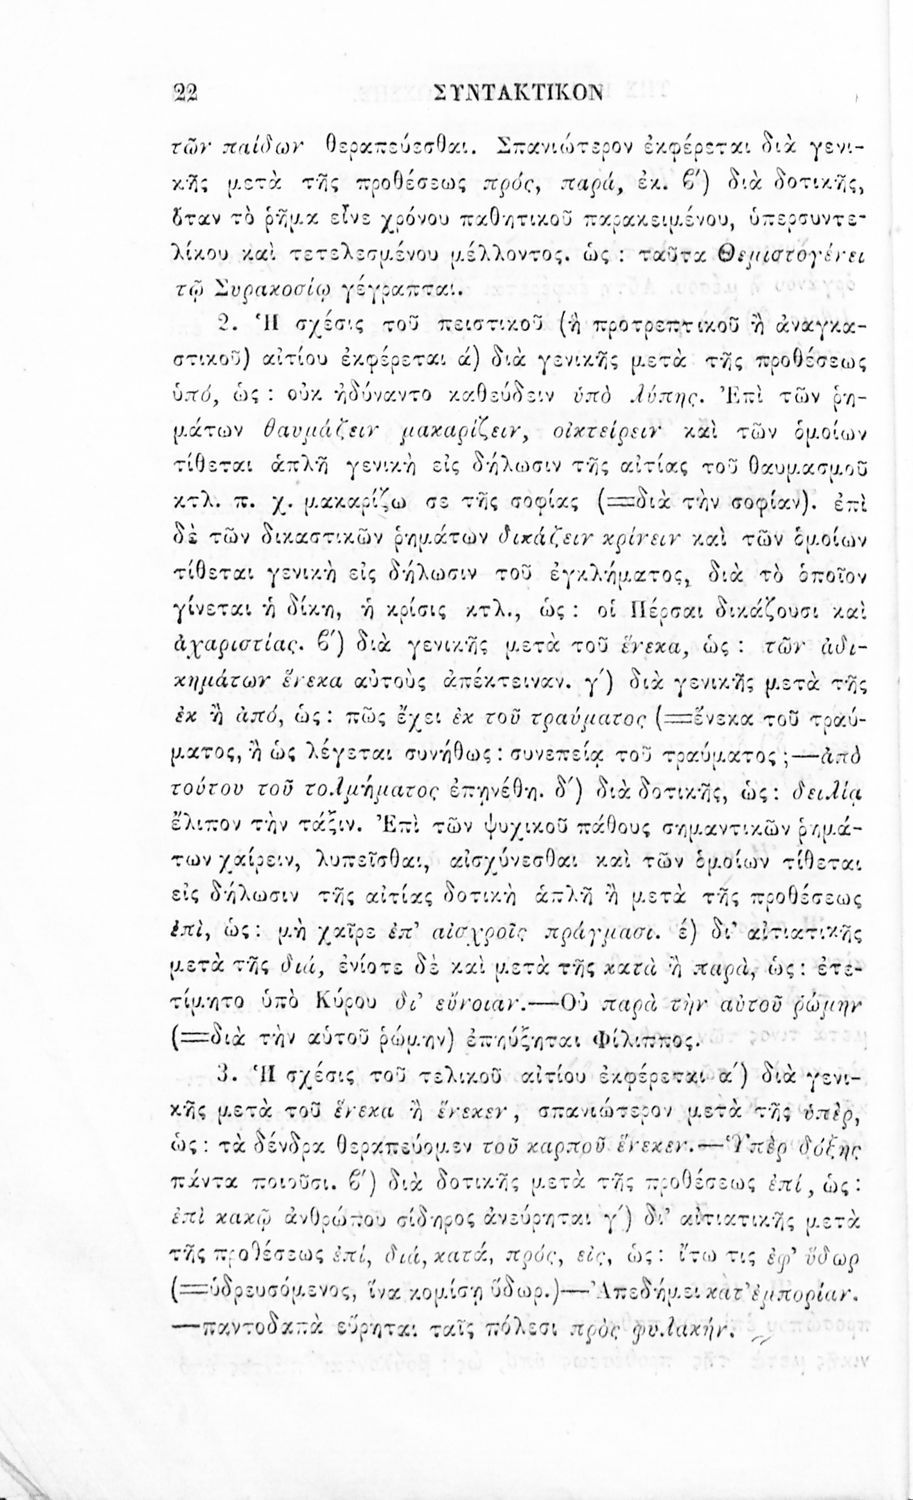 22 ΣΥΝΤΑΚΤΙΚΟΝ
τῶν παίδων θεραπεύεσθαι. Σπανιώτερον ἐκφέρεται διὰ γενι-
κῆς μετὰ τῆς προθέσεως πρός, παρά, ἐκ. ϐ′) διὰ δοτικῆς,
ὅταν τὸ ῥῆμα εἶνε χρόνου παθητικοῦ παρακειμένου, ὑπερσυντε-
λίκου καὶ τετελεσμένου μέλλοντος. ὡς : ταῦτα Θεμιστογένει
τῷ Συρακοσίῳ γέγραπται.
2. Ἡ σχέσις τοῦ πειστικοῦ (ἢ προτρεπτικοῦ ἢ ἀναγκα-
στικοῦ) αἰτίου ἐκφέρεται ά) διὰ γενικῆς μετὰ τῆς προθέσεως
ὑπό, ὡς : οὐκ ἠδύναντο καθεύδειν ὑπὸ λύπης. Ἐπὶ τῶν ῥη-
μάτων θαυμάζειν μακαρίζειν, οἰκτείρειν καὶ τῶν ὁμοίων
τίθεται ἁπλῆ γενικὴ εἰς δήλωσιν τῆς αἰτίας τοῦ θαυμασμοῦ
κτλ. π. χ. μακαρίζω σε τῆς σοφίας (=διὰ τὴν σοφίαν). ἐπὶ
δὲ τῶν δικαστικῶν ῥημάτων δικάζειν κρίνειν καὶ τῶν ὁμοίων
τίθεται γενικὴ εἰς δήλωσιν τοῦ ἐγκλήματος, διὰ τὸ ὁποῖον
γίνεται ἡ δίκη, ἡ κρίσις κτλ., ὡς : οἱ Πέρσαι δικάζουσι καὶ
ἀχαριστίας. ϐ′) διὰ γενικῆς μετὰ τοῦ ἕνεκα, ὡς : τῶν ἀδι-
κημάτων ἕνεκα αὐτοὺς ἀπέκτειναν. γ′) διὰ γενικῆς μετὰ τῆς
ἐκ ἢ ἀπό, ὡς : πῶς ἔχει ἐκ τοῦ τραύματος (=ἕνεκα τοῦ τραύ-
ματος, ἢ ὡς λέγεται συνήθως : συνεπείᾳ τοῦ τραύματος ;—ἀπὸ
τούτου τοῦ τολμήματος ἐπῃνέθη. δ′) διὰ δοτικῆς, ὡς : δειλίᾳ
ἔλιπον τὴν τάξιν. Ἐπὶ τῶν ψυχικοῦ πάθους σημαντικῶν ῥημά-
των χαίρειν, λυπεῖσθαι, αἰσχύνεσθαι καὶ τῶν ὁμοίων τίθεται
εἰς δήλωσιν τῆς αἰτίας δοτικὴ ἁπλῆ ἢ μετὰ τῆς προθέσεως
ἐπὶ, ὡς : μὴ χαῖρε ἐπ’ αἰσχροῖς πράγμασι. έ) δι’ αἰτιατικῆς
μετὰ τῆς διά, ἐνίοτε δὲ καὶ μετὰ τῆς κατὰ ἢ παρὰ, ὡς : ἐτε-
τίμητο ὑπὸ Κύρου δι’ εὔνοιαν.—Οὐ παρὰ τὴν αὐτοῦ ῥώμην
(=διὰ τὴν αὑτοῦ ῥώμην) ἐπηύξηται Φίλιππος.
3. Ἡ σχέσις τοῦ τελικοῦ αἰτίου ἐκφέρεται α′) διὰ γενι-
κῆς μετὰ τοῦ ἕνεκα ἢ ἕνεκεν, σπανιώτερον μετὰ τῆς ὑπὲρ,
ὡς : τὰ δένδρα θεραπεύομεν τοῦ καρποῦ ἕνεκεν.—Ὑπὲρ δόξης
πάντα ποιοῦσι. ϐ′) διὰ δοτικῆς μετὰ τῆς προθέσεως ἐπί, ὡς :
ἐπὶ κακῷ ἀνθρώπου σίδηρος ἀνεύρηται γ′) δι’ αἰτιατικῆς μετὰ
τῆς προθέσεως ἐπί, διά, κατά, πρός, εἰς, ὡς : ἴτω τις ἐφ’ ὕδωρ
(=ὑδρευσόμενος, ἵνα κομίσῃ ὕδωρ.)—Ἀπεδήμει κατ’ ἐμπορίαν.
—παντοδαπὰ εὕρηται ταῖς πόλεσι πρὸς φυλακήν.